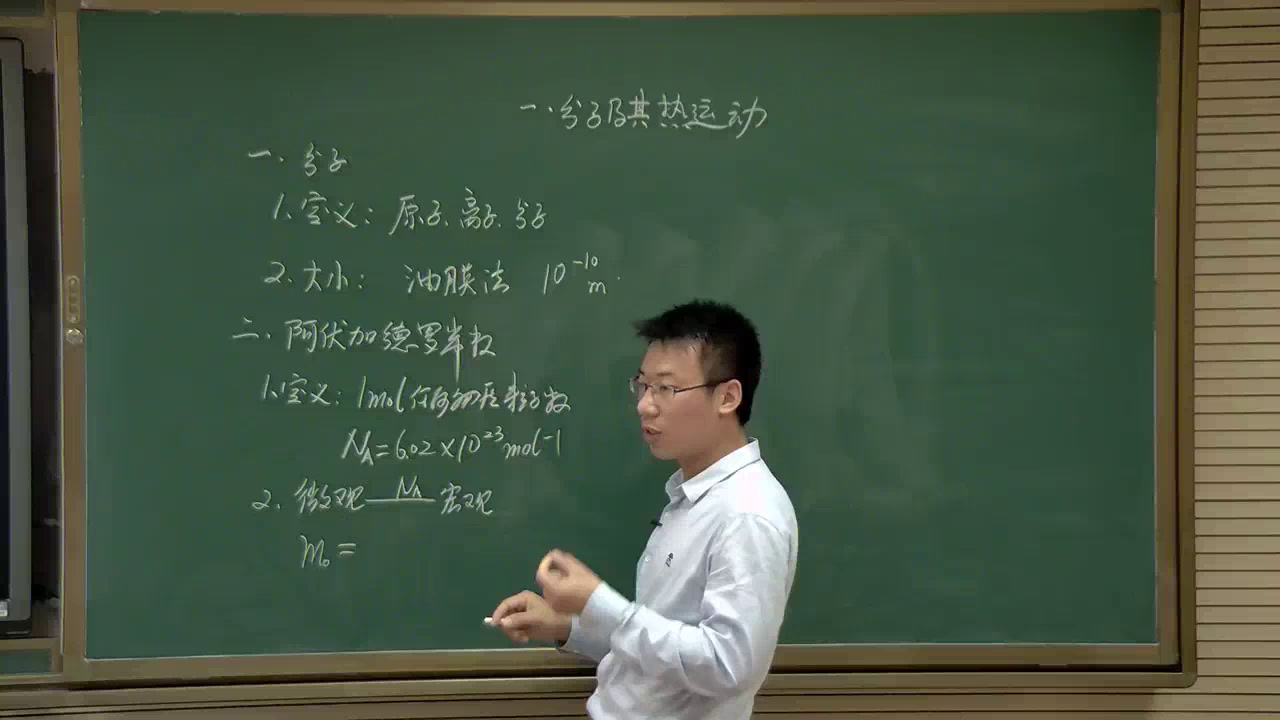 一.分子及其热运动
一.分子
1.定义:原子、离子、分子
2.大小: 油膜法 10⁻¹⁰m.
二.阿伏加德罗常数
1.定义:1mol任何物质粒子数
N_A=6.02×10²³mol⁻¹
2.微观 N_A 宏观
m₀=